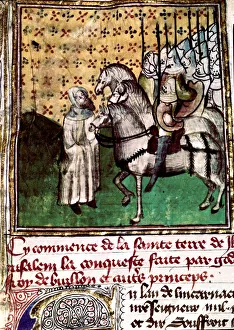 Cy commence de la sainte terre de Jh
rusalem la conqueste faite par god
fron de buillon et autres princeps.
lan de lincarnac
nreseigneur mil
et dix Gouffroit